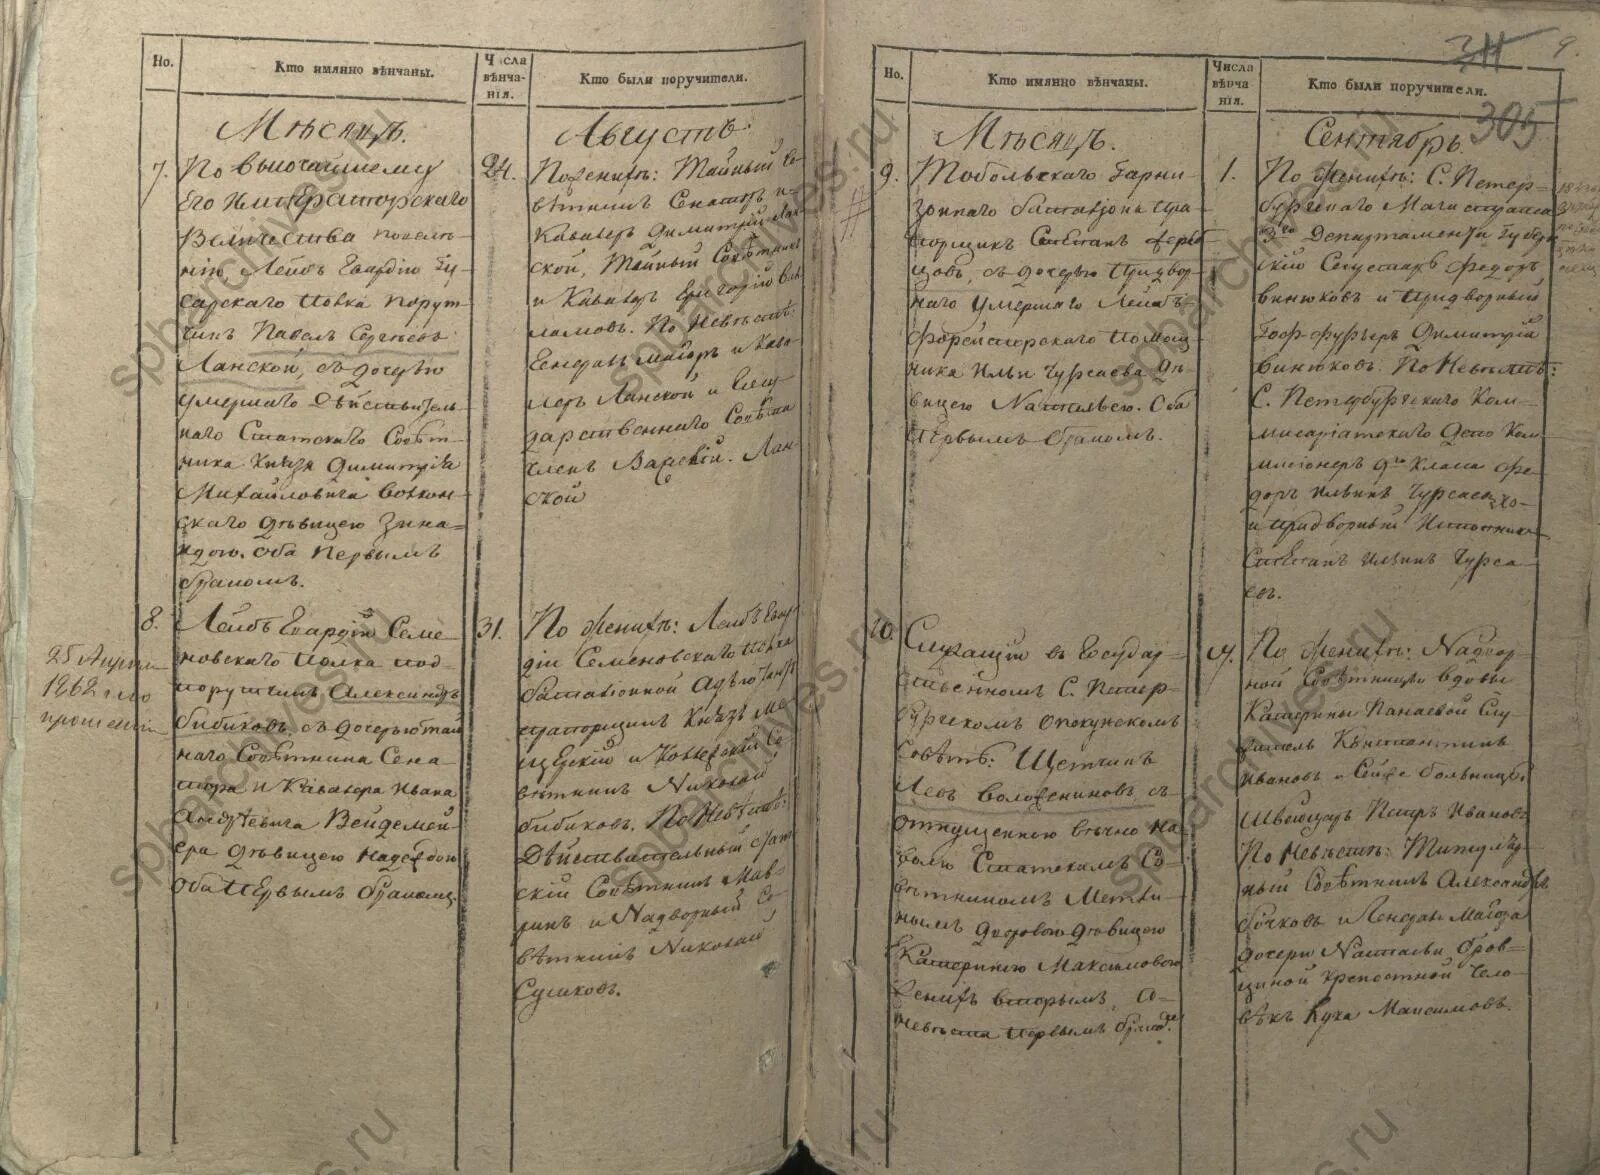 Но.
Кто имянно вѣнчаны.
Числа вѣнча-нія.
Кто были поручители.
Мѣсяцъ.
Августъ
7.
По высочайшему
Его Императорскаго
Величества повелѣ-
нію, Лейбъ Гвардіи Гу-
сарскаго Полка порут-
чикъ Павелъ Сергѣевъ
Ланской, съ дочерью
умершаго Дѣйствитель-
наго Статскаго Совѣт-
ника Князя Димитрія
Михайловича Волкон-
скаго дѣвицею Зина-
идою. Оба первымъ
бракомъ.
24.
По женихѣ: Тайный Со-
вѣтникъ Сенаторъ и
Кавалеръ Димитрій Лан-
ской, Тайный Совѣтникъ
и Кавалеръ Григорій
По Невѣстѣ:
Генералъ маіоръ и Кава-
леръ Ланской и
дарственнаго Совѣта
Членъ Василій Лан-
ской
8.
Лейбъ Гвардіи Семе-
новскаго Полка под-
порутчикъ Александръ
Бибиковъ, съ дочерью тай-
наго Совѣтника Сена-
тора и Кавалера Ивана
Андреевича Вейдемей-
ера дѣвицею Надеждою
Оба первымъ бракомъ.
25 Апрѣля
1862 г. по
прошенію
31.
По женихѣ: Лейбъ Гвар-
діи Семеновскаго Полка
баталіонной Адъютантъ
прапорщикъ Князь Ме-
щерскій и Коллежскій Со-
вѣтникъ Николай
Бибиковъ. По Невѣстѣ:
Дѣйствительный Стат-
скій Совѣтникъ Мав-
ринъ и Надворный Со-
вѣтникъ Николай
Сушковъ.
Но.
Кто имянно вѣнчаны.
Числа вѣнча-нія.
Кто были поручители.
311
9.
305
Мѣсяцъ.
Сентябрь.
9.
Тобольскаго Гарни-
зоннаго баталіона Пра-
порщикъ Степанъ
съ дочерью Придвор-
наго умершаго Лейбъ-
Форейторскаго Помощ-
ника Ильи Чурсаева Дѣ-
вицею Натальею. Оба
первымъ бракомъ.
1.
По женихѣ: С. Петер-
бургскаго Магистрата
3го Департамента Губерн-
скій Секретарь Федоръ
Винюковъ и Придворный
Гоф-фурьеръ Димитрій
Винюковъ. По Невѣстѣ:
С. Петербургскаго Ком-
мисаріатскаго Депо Ком-
мисіонеръ 9го Класа Фе-
доръ Ильинъ Чурсаевъ
и придворный Истопникъ
Степанъ Ильинъ Чурса-
евъ.
10.
Служащій въ Государ-
ственномъ С. Петер-
бургскомъ Опекунскомъ
Совѣтѣ: Щетчикъ
Левъ Воложениновъ, съ
отпущенною вѣчно на
волю Статскимъ Со-
вѣтникомъ
дворовою дѣвицею
Катериною Максимовою
женихъ вторымъ, а
невѣста первымъ браком.
4.
По женихѣ: Надвор-
ной Совѣтницы вдовы
Катерины Панаевой Слу-
житель Константинъ
Ивановъ и Сей же больницы
Швейцаръ Петръ Ивановъ
По Невѣстѣ: Титуляр-
ный Совѣтникъ Александръ
Бочковъ и Генералъ Маіора
дочери Натальи
крепостной чело-
вѣкъ Кузма Максимовъ.
spbarchives.ru